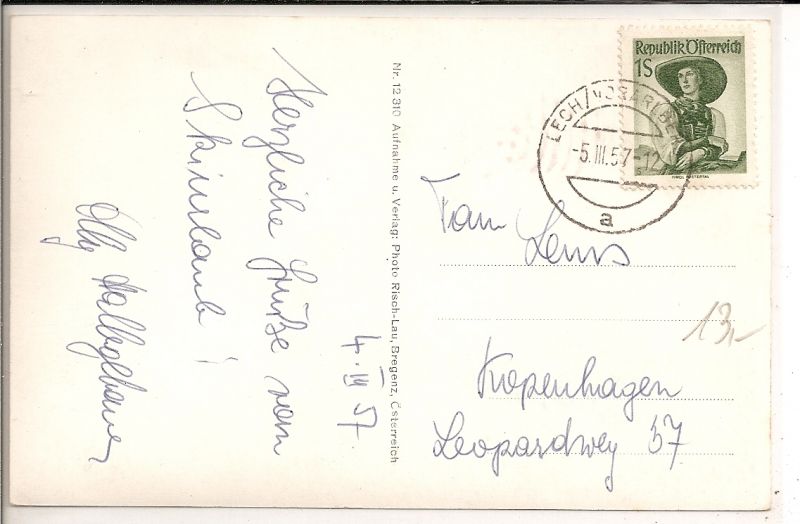 Herzliche Grüße vom
Skiurlaub!
4. III 57.
Nr. 12 310 Aufnahme u. Verlag: Photo Risch-Lau, Bregenz, Österreich
Republik Österreich
1S
LECH/VORARLBERG
-5.III.57-12
a
Lenus
13,-
Kopenhagen
Leopardwey 37